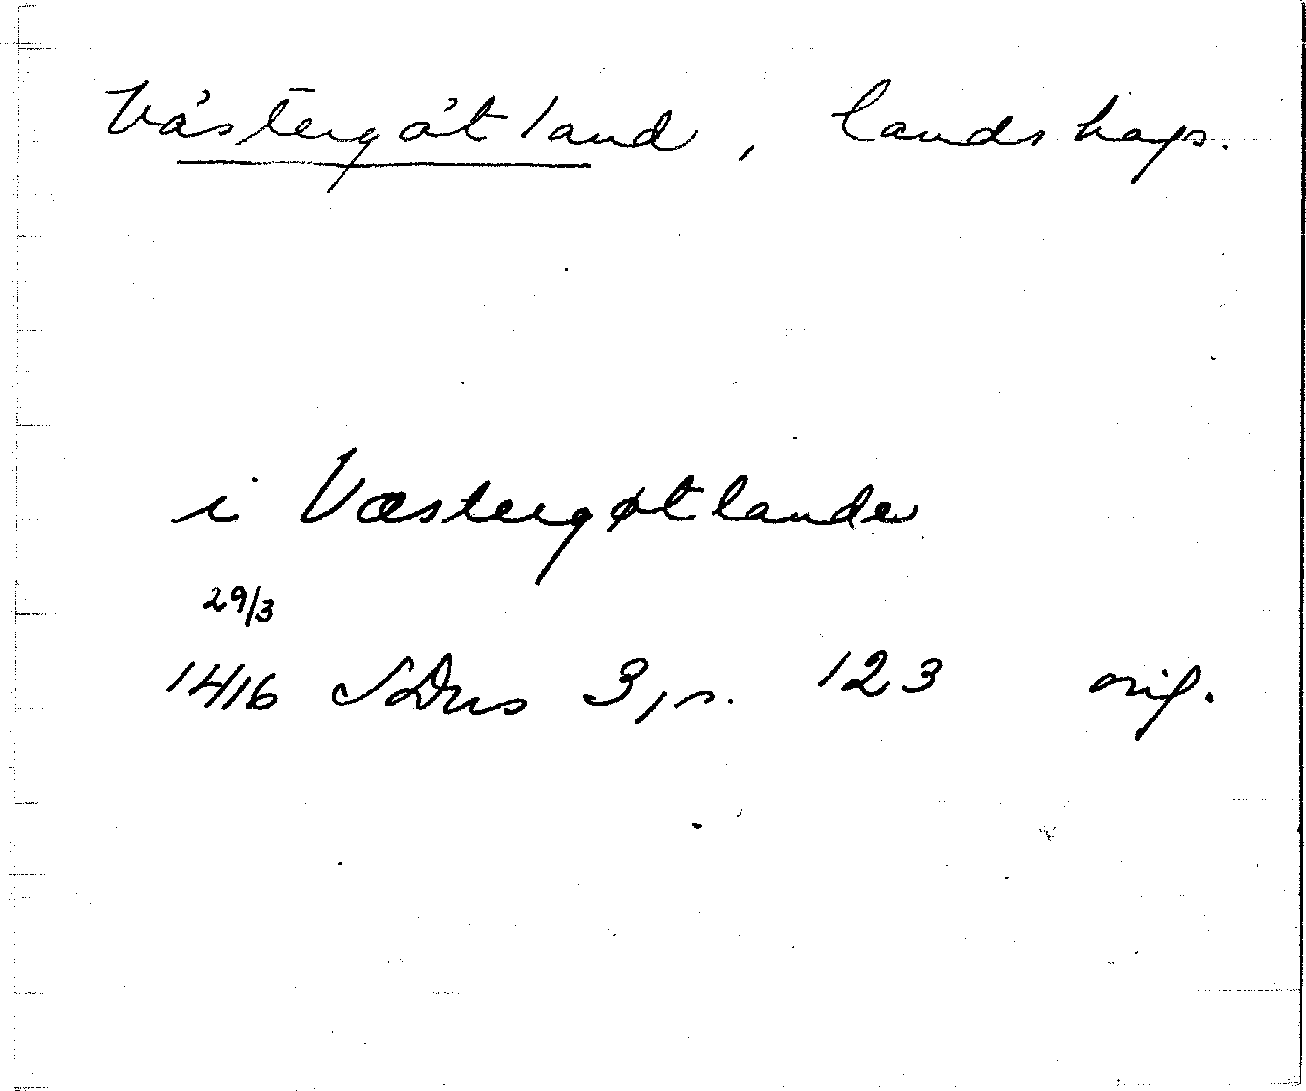 Västergötland, landskap.
i Væstergøtlande
29/3
1416 SDns 3, s. 123 orig.